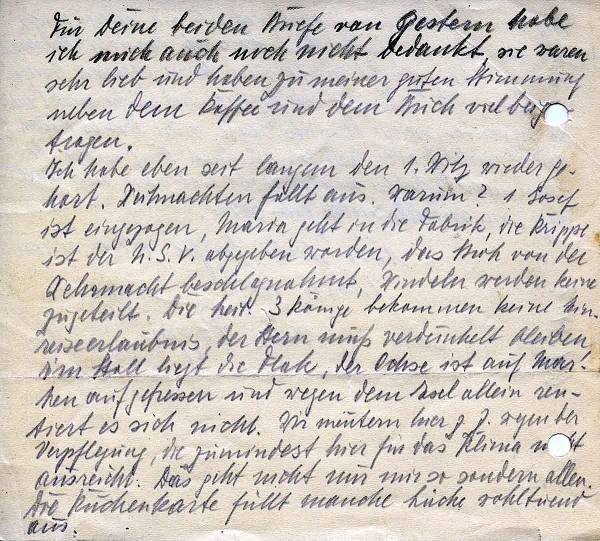 Für Deine beiden Briefe von Gestern habe
ich mich auch noch nicht bedankt sie waren
sehr lieb und haben zu meiner guten Stimmung
neben dem Kaffee und dem Buch viel beige
tragen.
Ich habe eben seit langem den 1. Witz wieder ge-
hört. Weihnachten fällt aus. Warum? Josef
ist eingezogen, Maria geht in die Fabrik, die Krippe
ist der N.S.V. abgegeben worden, das Stroh von der
Wehrmacht beschlagnahmt, Windeln werden keine
zugeteilt. Die heil. 3 Könige bekommen keine Ein-
reiseerlaubnis, der Stern muß verdunkelt bleiben
im Stall liegt die Flak, der Ochse ist auf Mar-
ken aufgefressen und wegen dem Esel allein ren-
tiert es sich nicht. Wir meutern hier z. Z. wegen der
Verpflegung, die zumindest hier für das Klima nicht
ausreicht. Das geht nicht nur mir so sondern allen.
Die Kuchenkarte füllt manche Lücke wohltuend
aus.